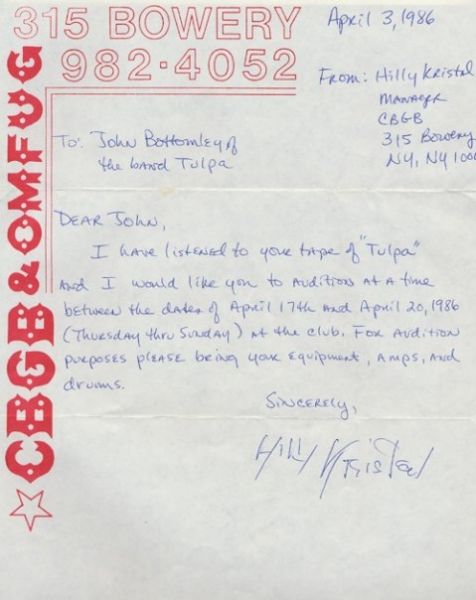 315 BOWERY
982·4052
CBGB & OMFUG
April 3, 1986
From: Hilly Kristal
MANAGER
CBGB
315 Bowery
NY, NY 1000
To: John Bottomley of
the band Tulpa
DEAR JOHN,
I have listened to your tape of "Tulpa"
AND I would like you to audition at a time
between the dates of April 17th and April 20, 1986
(Thursday thru Sunday) at the club. For audition
purposes please bring your equipment, amps, and
drums.
Sincerely,
Hilly Kristal